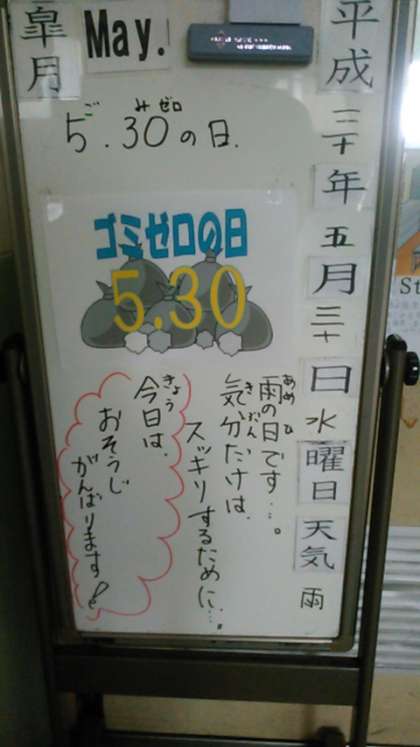 皐月
May.
平成三十年五月三十日水曜日天気雨
ご みゼロ
5.30の日.
ゴミゼロの日
5.30
あめ ひ
雨の日です…。
き ぶん
気分だけは、
スッキリするために…。
きょう
今日は、
おそうじ
がんばります!